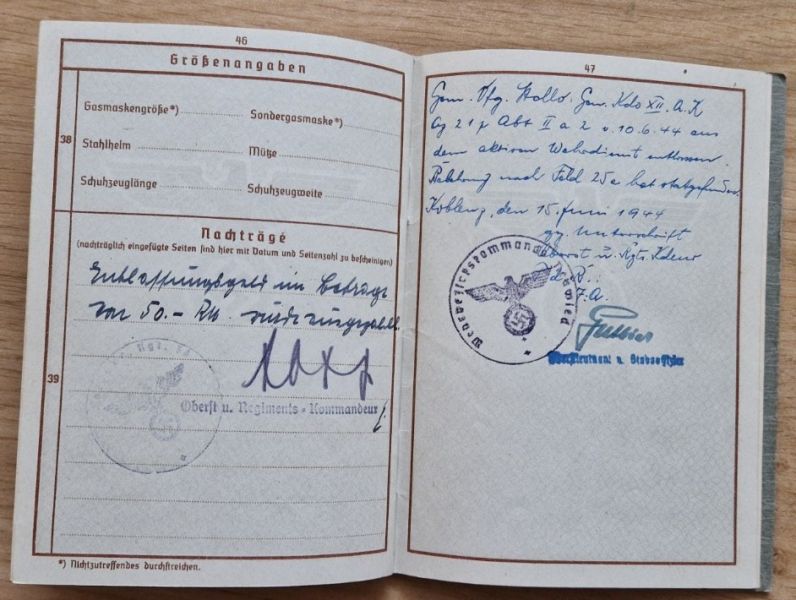 46
Größenangaben
38
Gasmaskengröße*) Sondergasmaske*)
Stahlhelm Mütze
Schuhzeuglänge Schuhzeugweite
39
Nachträge
(nachträglich eingefügte Seiten sind hier mit Datum und Seitenzahl zu bescheinigen)
Entlassungsgeld im Betrage
von 50.- RM
Oberst u. Regiments-Kommandeur
*) Nichtzutreffendes durchstreichen.
47
Gem. Vfg. Gen. Kdo XII. A.K
Abt II a 2 v. 10.6.44 aus
dem aktiven Wehrdienst entlassen.
nach Feld 25a hat stattgefunden.
Koblenz, den 15. Juni 1944
gez. Unterschrift
Oberst u. Rgts. Kdeur
F.d.R.:
I.A.
Wehrbezirkskommando Neuwied
Oberstleutnant u.